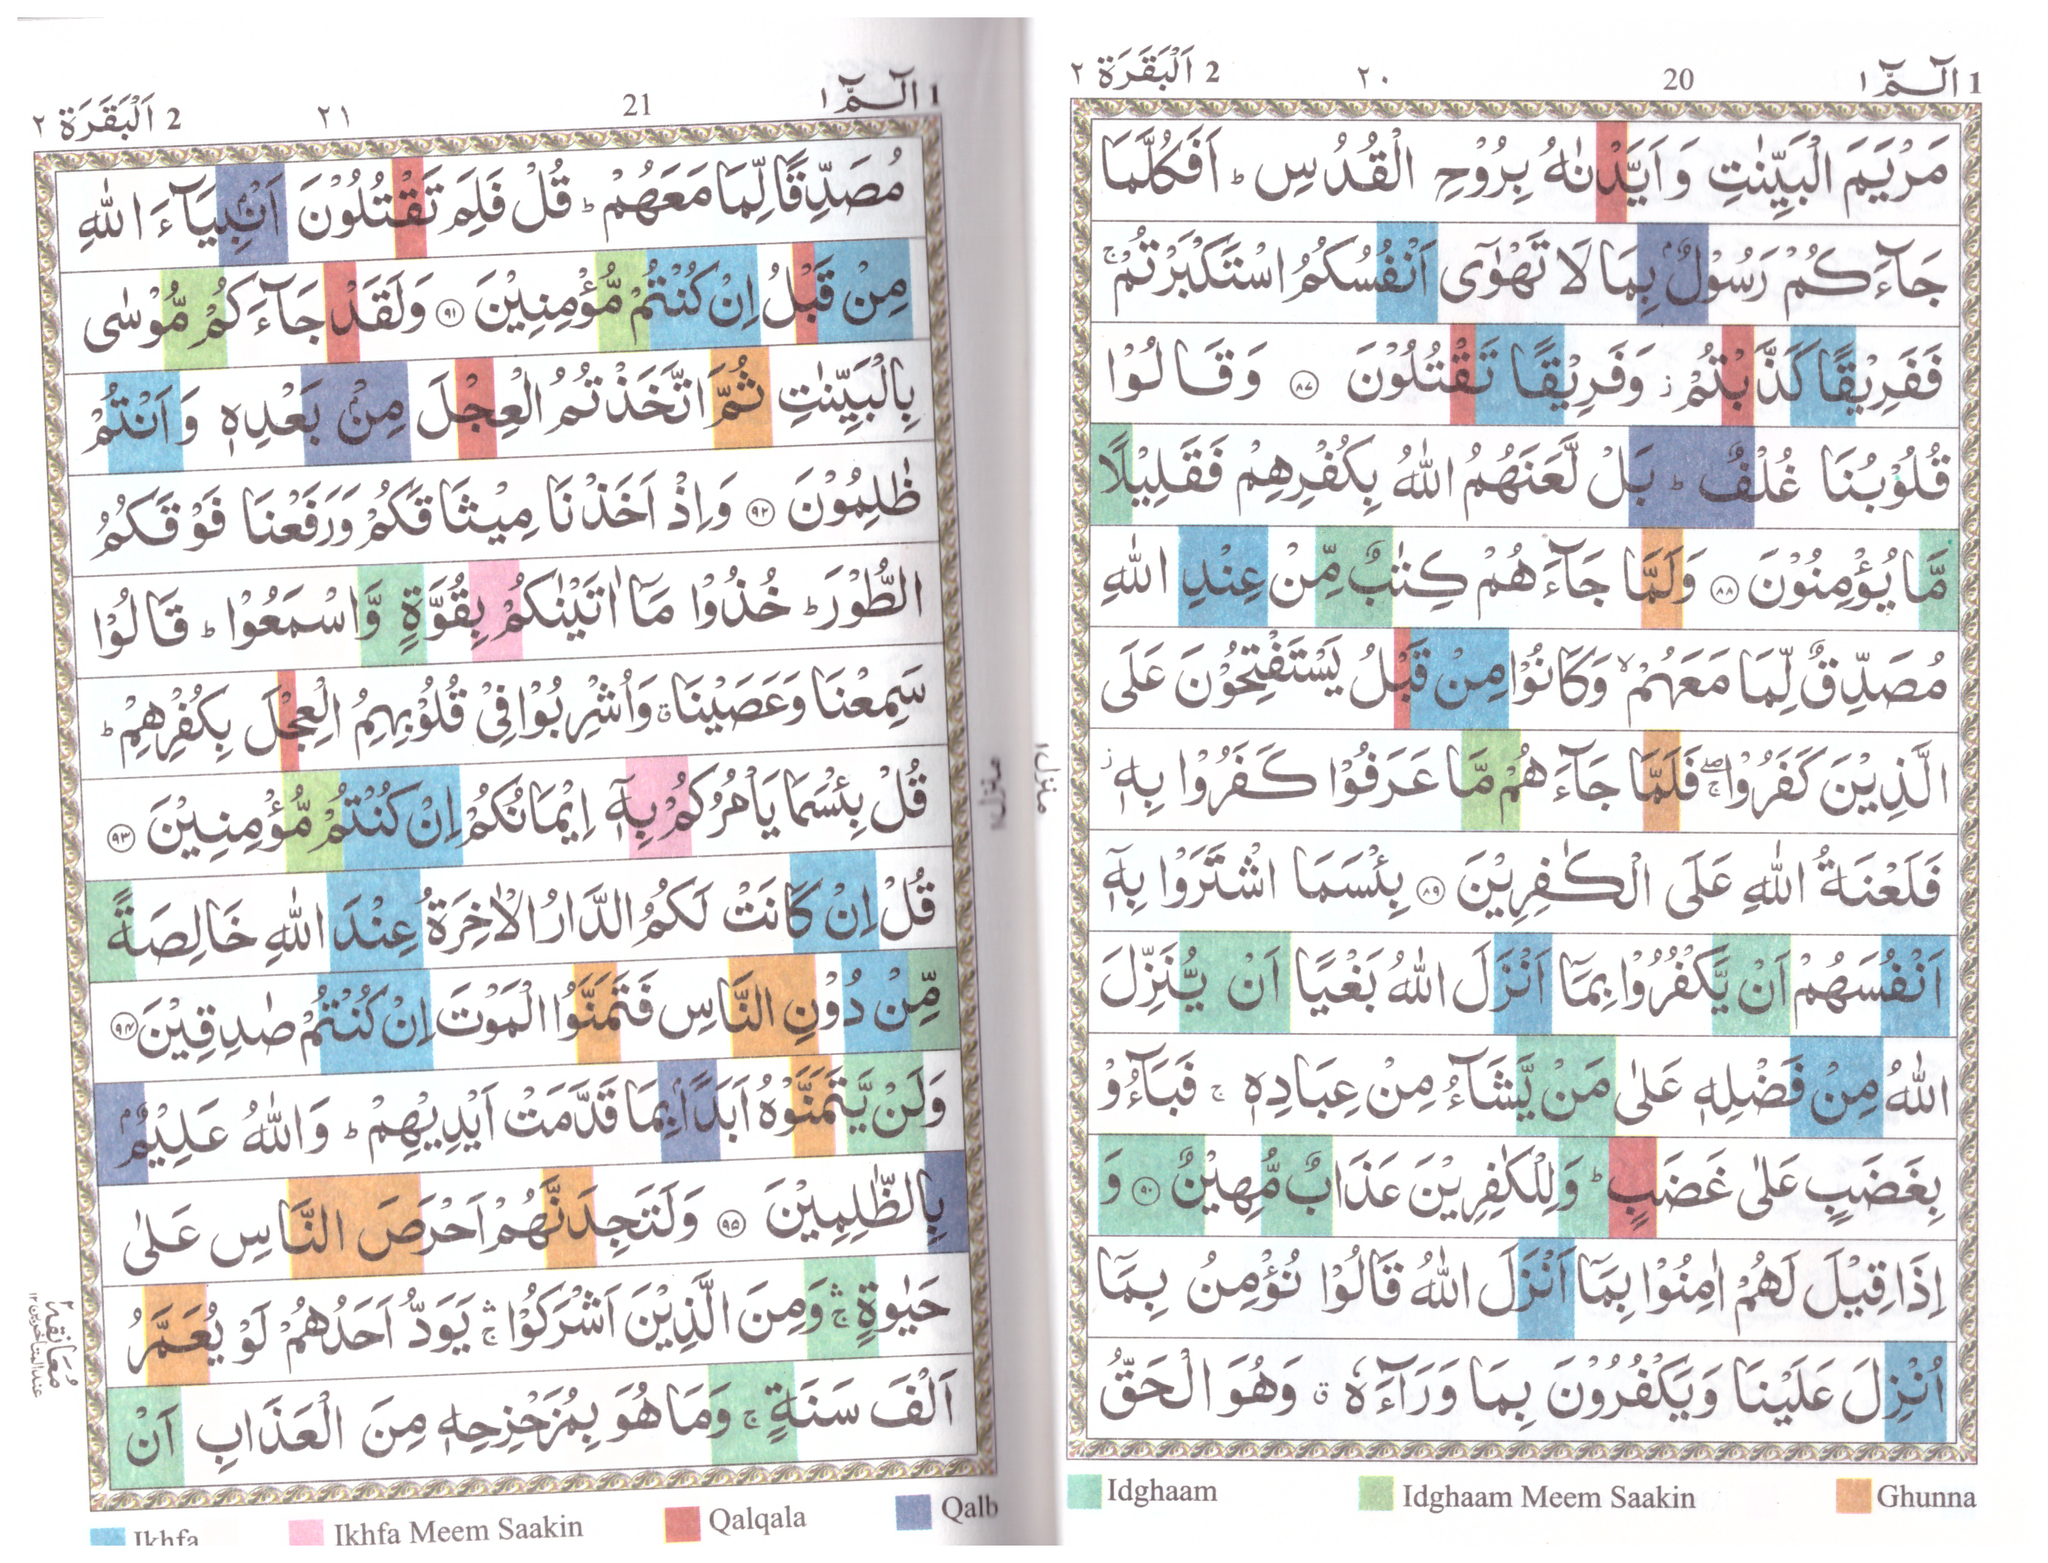 1 الٓـمّٓ ١
20
٢٠
2 اَلْبَقَرَة ٢
مَرْيَمَ الْبَيِّنٰتِ وَاَيَّدْنٰهُ بِرُوْحِ الْقُدُسِ ؕ اَفَكُلَّمَا
جَآءَكُمْ رَسُوْلٌۢ بِمَا لَا تَهْوٰٓى اَنْفُسُكُمُ اسْتَكْبَرْتُمْ ۚ
فَفَرِيْقًا كَذَّبْتُمْ ؗ وَفَرِيْقًا تَقْتُلُوْنَ ۸۷ وَقَالُوْا
قُلُوْبُنَا غُلْفٌ ؕ بَلْ لَّعَنَهُمُ اللّٰهُ بِكُفْرِهِمْ فَقَلِيْلًا
مَّا يُؤْمِنُوْنَ ۸۸ وَلَمَّا جَآءَهُمْ كِتٰبٌ مِّنْ عِنْدِ اللّٰهِ
مُصَدِّقٌ لِّمَا مَعَهُمْ ۙ وَكَانُوْا مِنْ قَبْلُ يَسْتَفْتِحُوْنَ عَلَى
الَّذِيْنَ كَفَرُوْا ۖۚ فَلَمَّا جَآءَهُمْ مَّا عَرَفُوْا كَفَرُوْا بِهٖ ؗ
فَلَعْنَةُ اللّٰهِ عَلَى الْكٰفِرِيْنَ ۸۹ بِئْسَمَا اشْتَرَوْا بِهٖٓ
اَنْفُسَهُمْ اَنْ يَّكْفُرُوْا بِمَآ اَنْزَلَ اللّٰهُ بَغْيًا اَنْ يُّنَزِّلَ
اللّٰهُ مِنْ فَضْلِهٖ عَلٰى مَنْ يَّشَآءُ مِنْ عِبَادِهٖ ۚ فَبَآءُوْ
بِغَضَبٍ عَلٰى غَضَبٍ ؕ وَلِلْكٰفِرِيْنَ عَذَابٌ مُّهِيْنٌ ۹۰ وَ
اِذَا قِيْلَ لَهُمْ اٰمِنُوْا بِمَآ اَنْزَلَ اللّٰهُ قَالُوْا نُؤْمِنُ بِمَآ
اُنْزِلَ عَلَيْنَا وَيَكْفُرُوْنَ بِمَا وَرَآءَهٗ ۗ وَهُوَ الْحَقُّ
منزل ١
Idghaam
Idghaam Meem Saakin
Ghunna
1 الٓـمّٓ ١
21
٢١
2 اَلْبَقَرَة ٢
مُصَدِّقًا لِّمَا مَعَهُمْ ؕ قُلْ فَلِمَ تَقْتُلُوْنَ اَنْۢبِيَآءَ اللّٰهِ
مِنْ قَبْلُ اِنْ كُنْتُمْ مُّؤْمِنِيْنَ ۹۱ وَلَقَدْ جَآءَكُمْ مُّوْسٰى
بِالْبَيِّنٰتِ ثُمَّ اتَّخَذْتُمُ الْعِجْلَ مِنْۢ بَعْدِهٖ وَاَنْتُمْ
ظٰلِمُوْنَ ۹۲ وَاِذْ اَخَذْنَا مِيْثَاقَكُمْ وَرَفَعْنَا فَوْقَكُمُ
الطُّوْرَ ؕ خُذُوْا مَآ اٰتَيْنٰكُمْ بِقُوَّةٍ وَّاسْمَعُوْا ؕ قَالُوْا
سَمِعْنَا وَعَصَيْنَا ۗ وَاُشْرِبُوْا فِيْ قُلُوْبِهِمُ الْعِجْلَ بِكُفْرِهِمْ ؕ
قُلْ بِئْسَمَا يَاْمُرُكُمْ بِهٖٓ اِيْمَانُكُمْ اِنْ كُنْتُمْ مُّؤْمِنِيْنَ ۹۳
قُلْ اِنْ كَانَتْ لَكُمُ الدَّارُ الْاٰخِرَةُ عِنْدَ اللّٰهِ خَالِصَةً
مِّنْ دُوْنِ النَّاسِ فَتَمَنَّوُا الْمَوْتَ اِنْ كُنْتُمْ صٰدِقِيْنَ ۹۴
وَلَنْ يَّتَمَنَّوْهُ اَبَدًۢا بِمَا قَدَّمَتْ اَيْدِيْهِمْ ؕ وَاللّٰهُ عَلِيْمٌۢ
بِالظّٰلِمِيْنَ ۹۵ وَلَتَجِدَنَّهُمْ اَحْرَصَ النَّاسِ عَلٰى
حَيٰوةٍ ۛۚ وَمِنَ الَّذِيْنَ اَشْرَكُوْا ۛۚ يَوَدُّ اَحَدُهُمْ لَوْ يُعَمَّرُ
اَلْفَ سَنَةٍ ۚ وَمَا هُوَ بِمُزَحْزِحِهٖ مِنَ الْعَذَابِ اَنْ
منزل ١
مُعَانقة ٢
عند المتأخرين ١٢
Ikhfa
Ikhfa Meem Saakin
Qalqala
Qalb